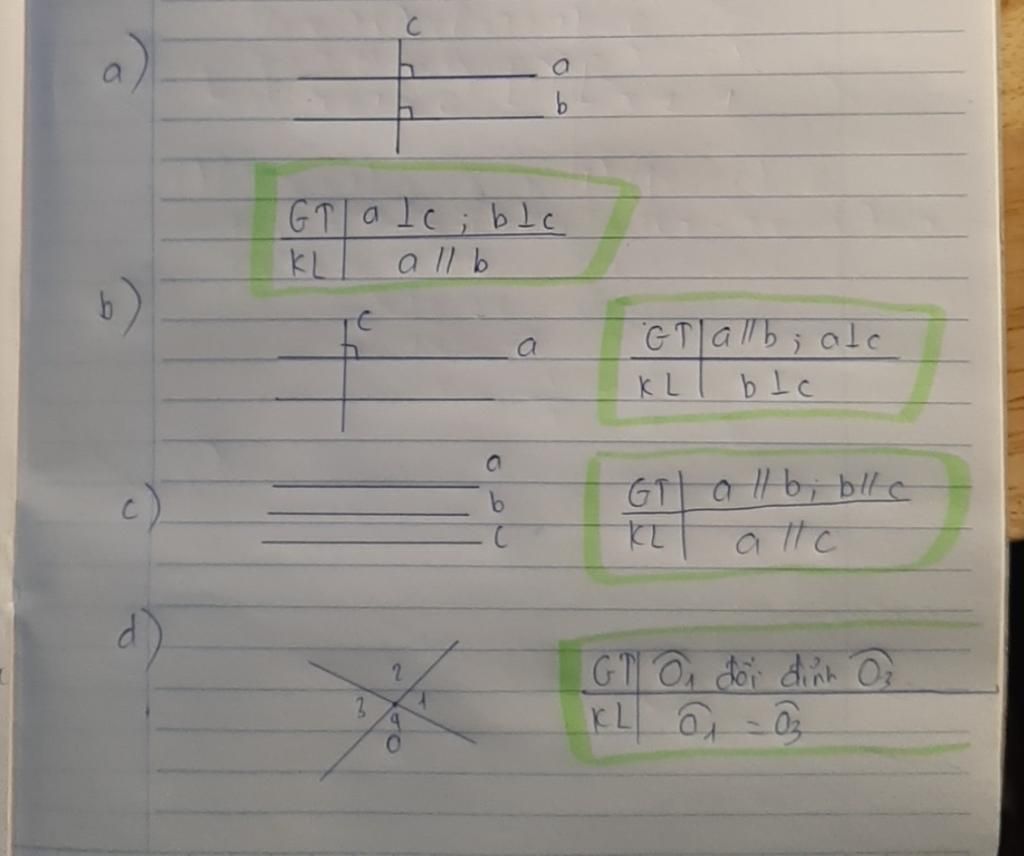 a)
c
a
b
GT | a ⊥ c ; b ⊥ c
KL | a // b
b)
c
a
GT | a // b ; a ⊥ c
KL | b ⊥ c
c)
a
b
c
GT | a // b ; b // c
KL | a // c
d)
2
3 1
O
GT | Ô1 đối đỉnh Ô3
KL | Ô1 = Ô3